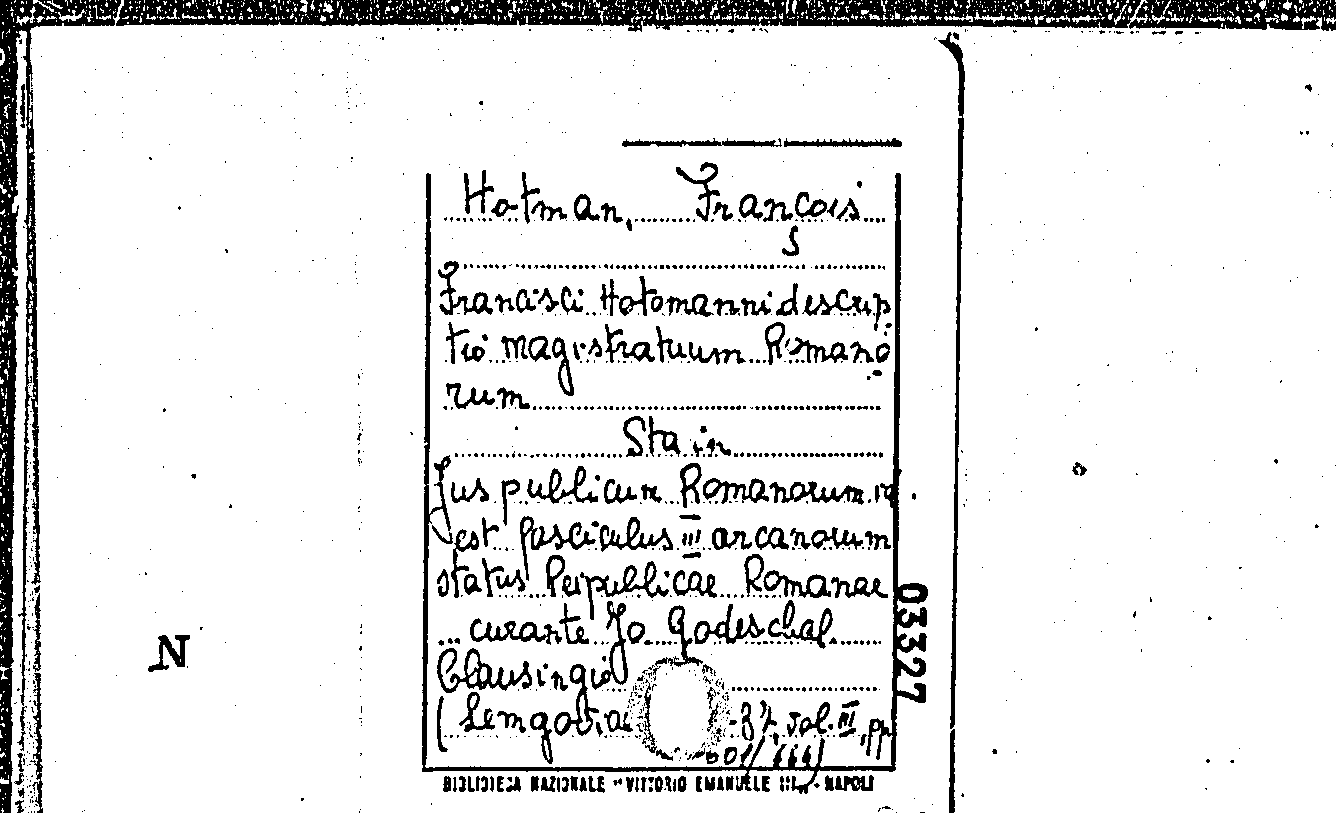 Hotman, François
Francisci Hotomanni descrip
tio magistratuum Romano
rum
Sta in
Jus publicum Romanorum id
est fasciculus III arcanorum
status Reipublicae Romanae
... curante Jo Godeschal
Clausingio
(Lemgoviae vol. III, pp
03327
N
BIBLIOTECA NAZIONALE "VITTORIO EMANUELE III" - NAPOLI